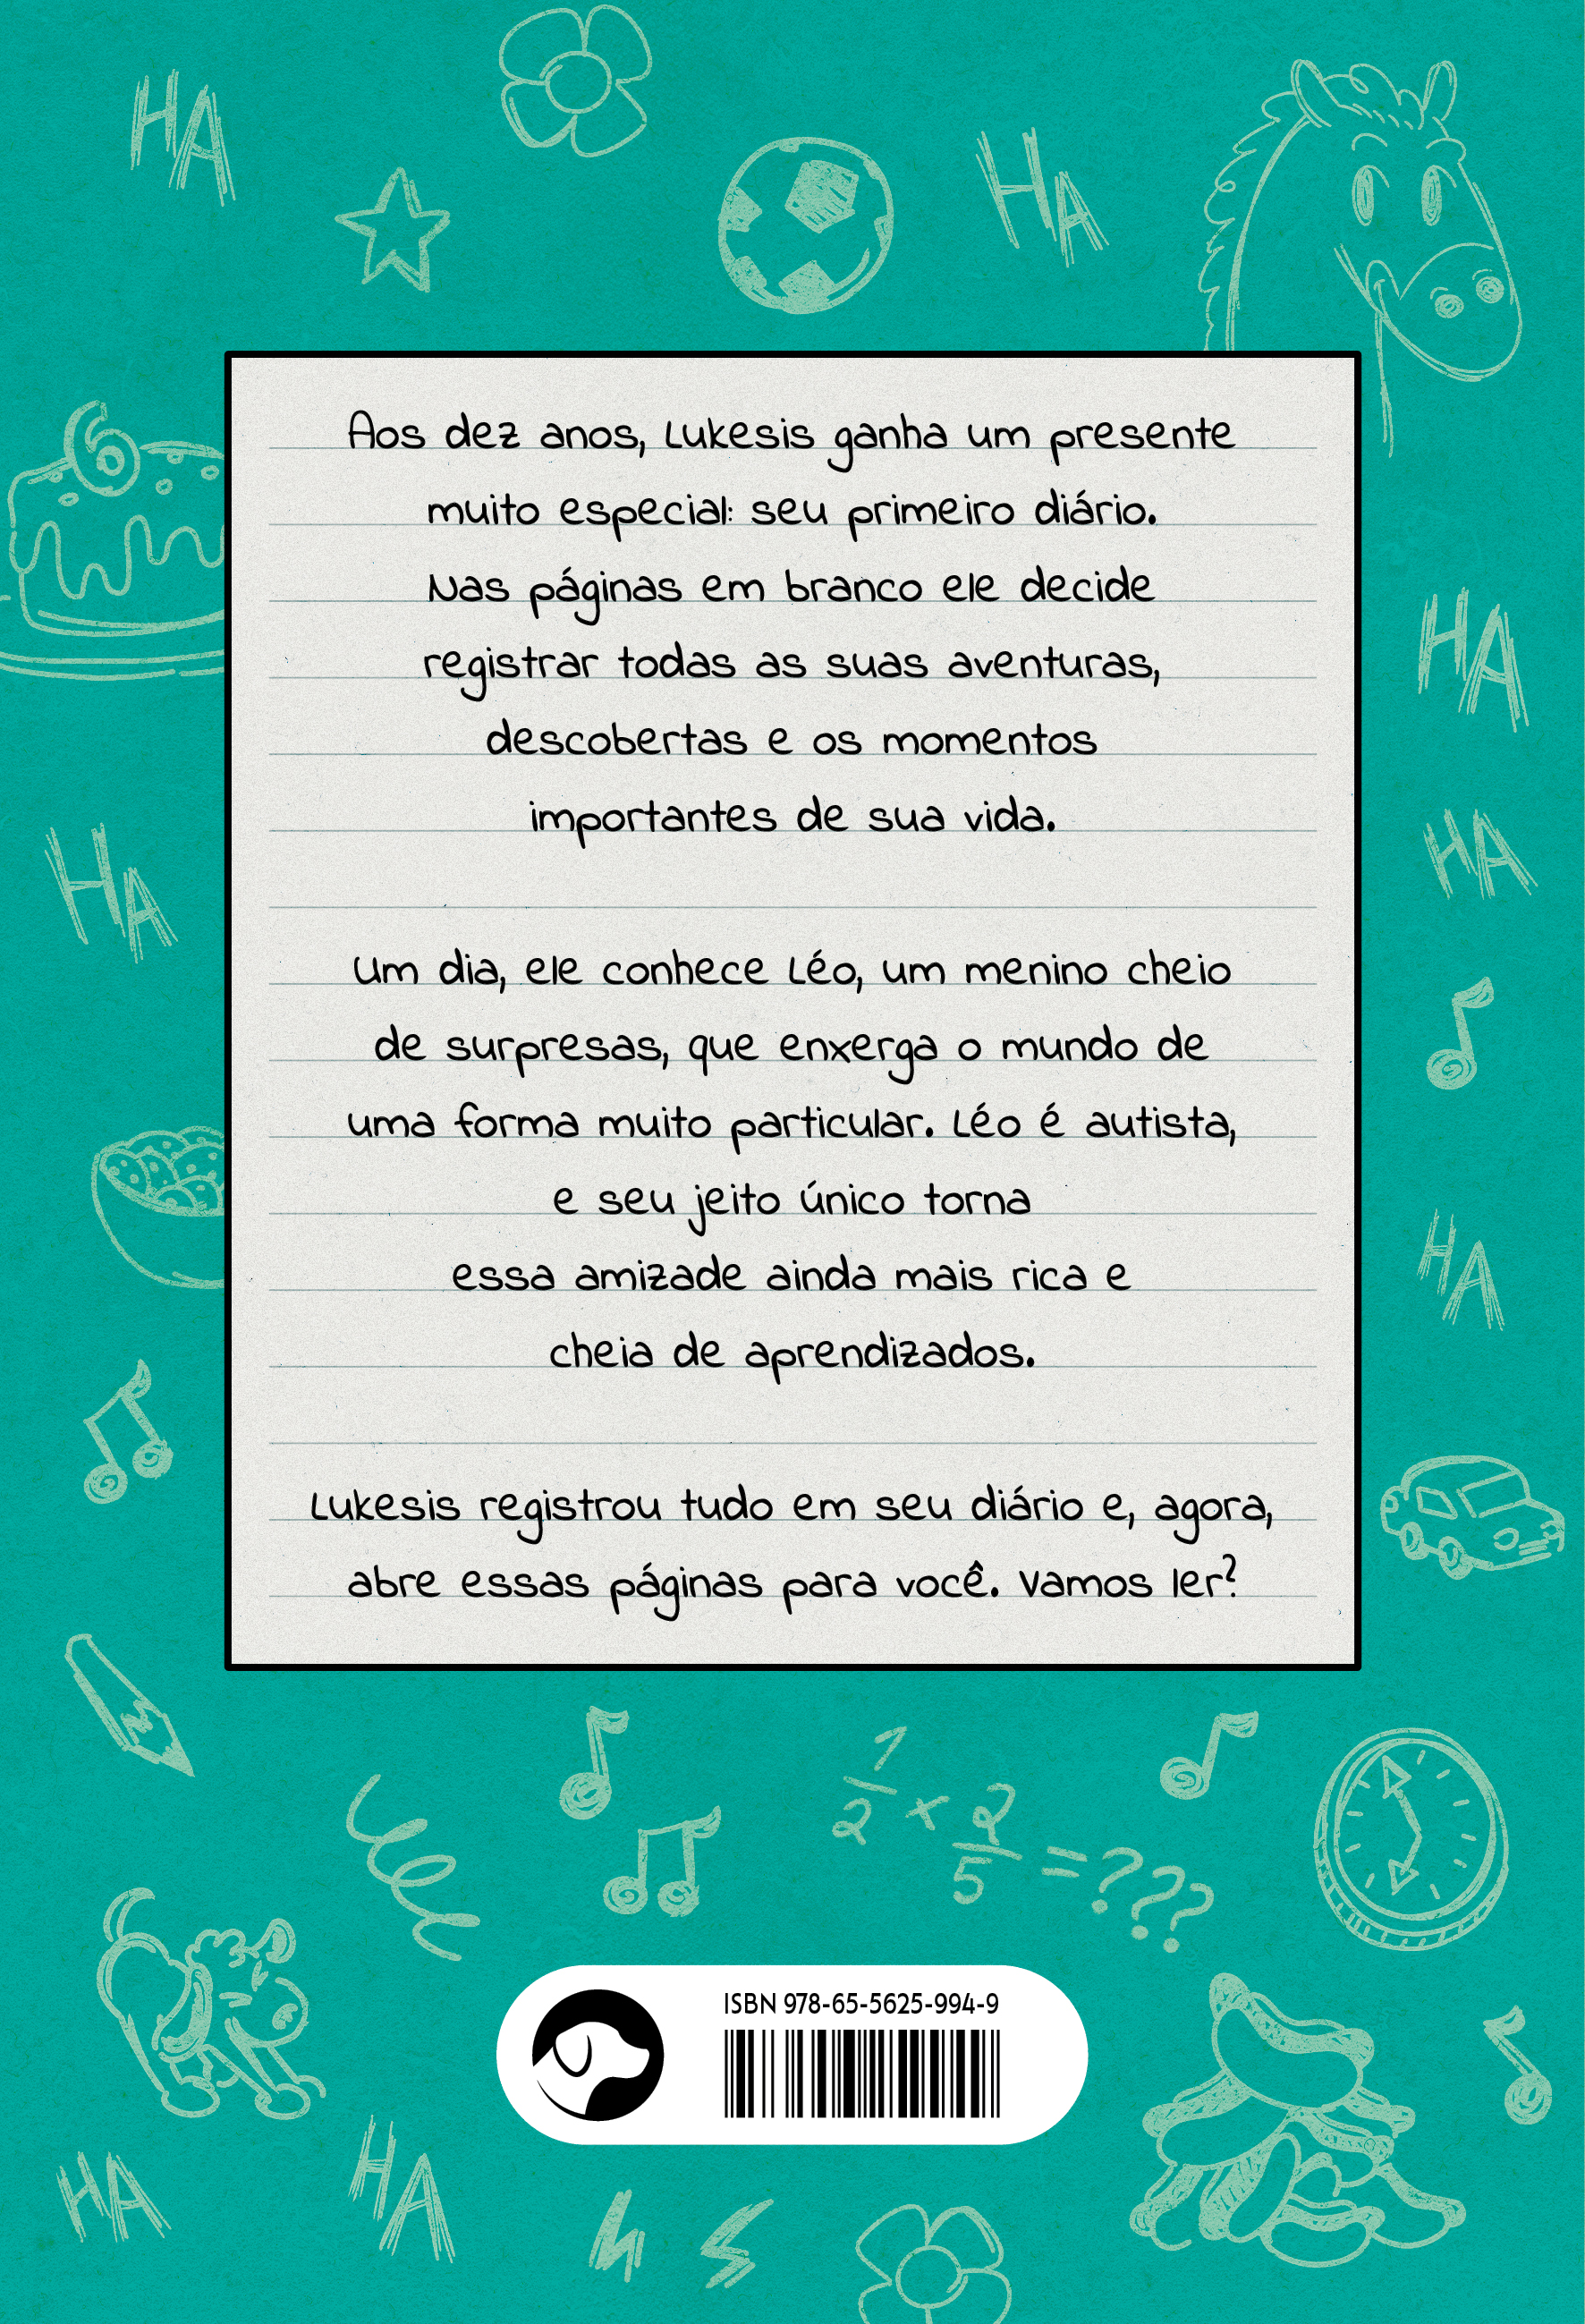 HA
HA
6
Aos dez anos, Lukesis ganha um presente
muito especial: seu primeiro diário.
Nas páginas em branco ele decide
registrar todas as suas aventuras,
descobertas e os momentos
importantes de sua vida.
HA
HA
HA
Um dia, ele conhece Léo, um menino cheio
de surpresas, que enxerga o mundo de
uma forma muito particular. Léo é autista,
e seu jeito único torna
essa amizade ainda mais rica e
cheia de aprendizados.
HA
Lukesis registrou tudo em seu diário e, agora,
abre essas páginas para você. Vamos ler?
1/2 × 2/5 = ???
ISBN 978-65-5625-994-9
HA
HA